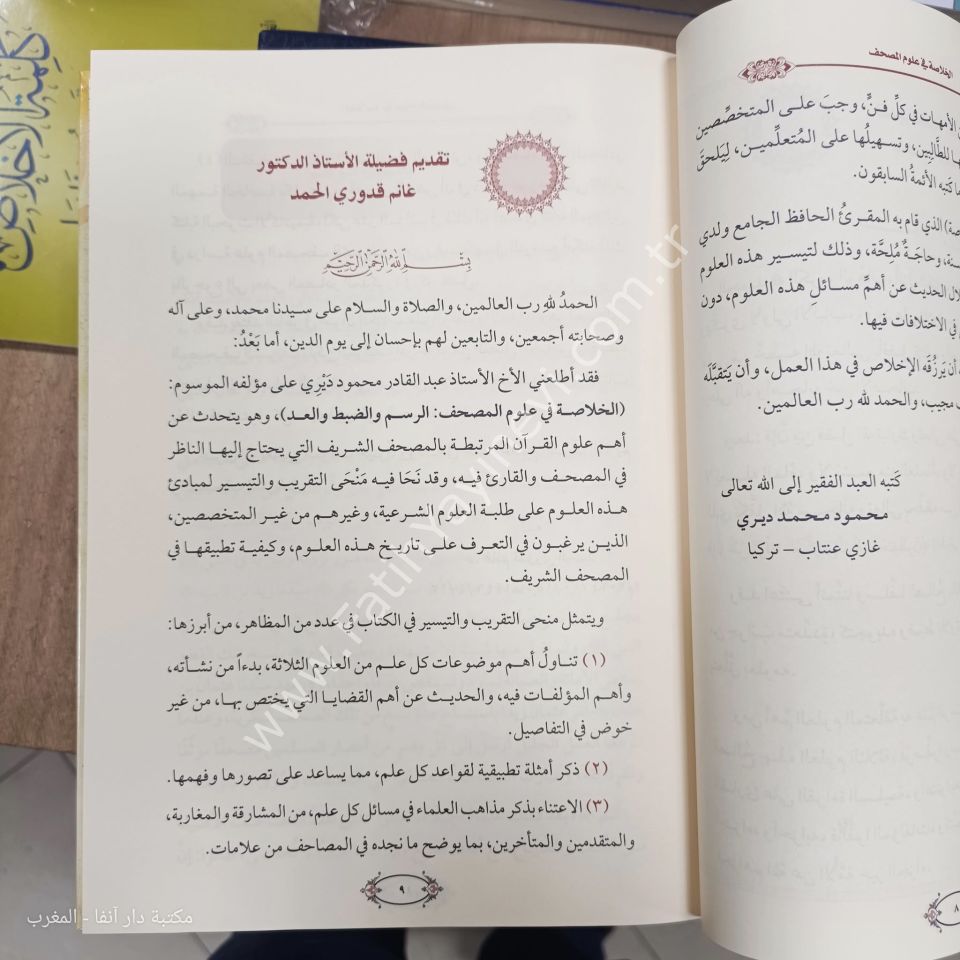 الخلاصة في علوم المصحف
الأمهات في كلِّ فنٍّ، وجبَ على المتخصِّصين
للطَّالِبين، وتسهيلُها على المُتعلِّمين، لِيَلحقَ
كتبه الأئمةُ السابقون.
الذي قام به المقرئُ الحافظ الجامع ولدي
وحاجَةٌ مُلِحَّة، وذلك لتيسير هذه العلوم
الحديث عن أهمِّ مسائلِ هذه العلوم، دون
في الاختلافات فيها.
أن يَرزُقَه الإخلاص في هذا العمل، وأن يَتقبَّلَه
مجيب، والحمد لله رب العالمين.
كَتبه العبد الفقير إلى الله تعالى
محمود محمد ديري
غازي عنتاب – تركيا
٨
تقديم فضيلة الأستاذ الدكتور
غانم قدوري الحمد
بسم الله الرحمن الرحيم
الحمدُ للهِ رب العالمين، والصلاة والسلام على سيدنا محمد، وعلى آله
وصحابته أجمعين، والتابعين لهم بإحسان إلى يوم الدين، أما بَعْدُ:
فقد أطلعني الأخ الأستاذ عبد القادر محمود دَيْرِي على مؤلفه الموسوم:
(الخلاصة في علوم المصحف: الرسم والضبط والعد)، وهو يتحدث عن
أهم علوم القرآن المرتبطة بالمصحف الشريف التي يحتاج إليها الناظر
في المصحف والقارئ فيه، وقد نَحَا فيه مَنْحَى التقريب والتيسير لمبادئ
هذه العلوم على طلبة العلوم الشرعية، وغيرهم من غير المتخصصين،
الذين يرغبون في التعرف على تاريخ هذه العلوم، وكيفية تطبيقها في
المصحف الشريف.
ويتمثل منحى التقريب والتيسير في الكتاب في عدد من المظاهر، من أبرزها:
(١) تناولُ أهم موضوعات كل علم من العلوم الثلاثة، بدءاً من نشأته،
وأهم المؤلفات فيه، والحديث عن أهم القضايا التي يختص بها، من غير
خوض في التفاصيل.
(٢) ذكر أمثلة تطبيقية لقواعد كل علم، مما يساعد على تصورها وفهمها.
(٣) الاعتناء بذكر مذاهب العلماء في مسائل كل علم، من المشارقة والمغاربة،
والمتقدمين والمتأخرين، بما يوضح ما نجده في المصاحف من علامات.
٩
كلمة الإخلاص
www.fatihyayinevi.com.tr
مكتبة دار آنفا - المغرب